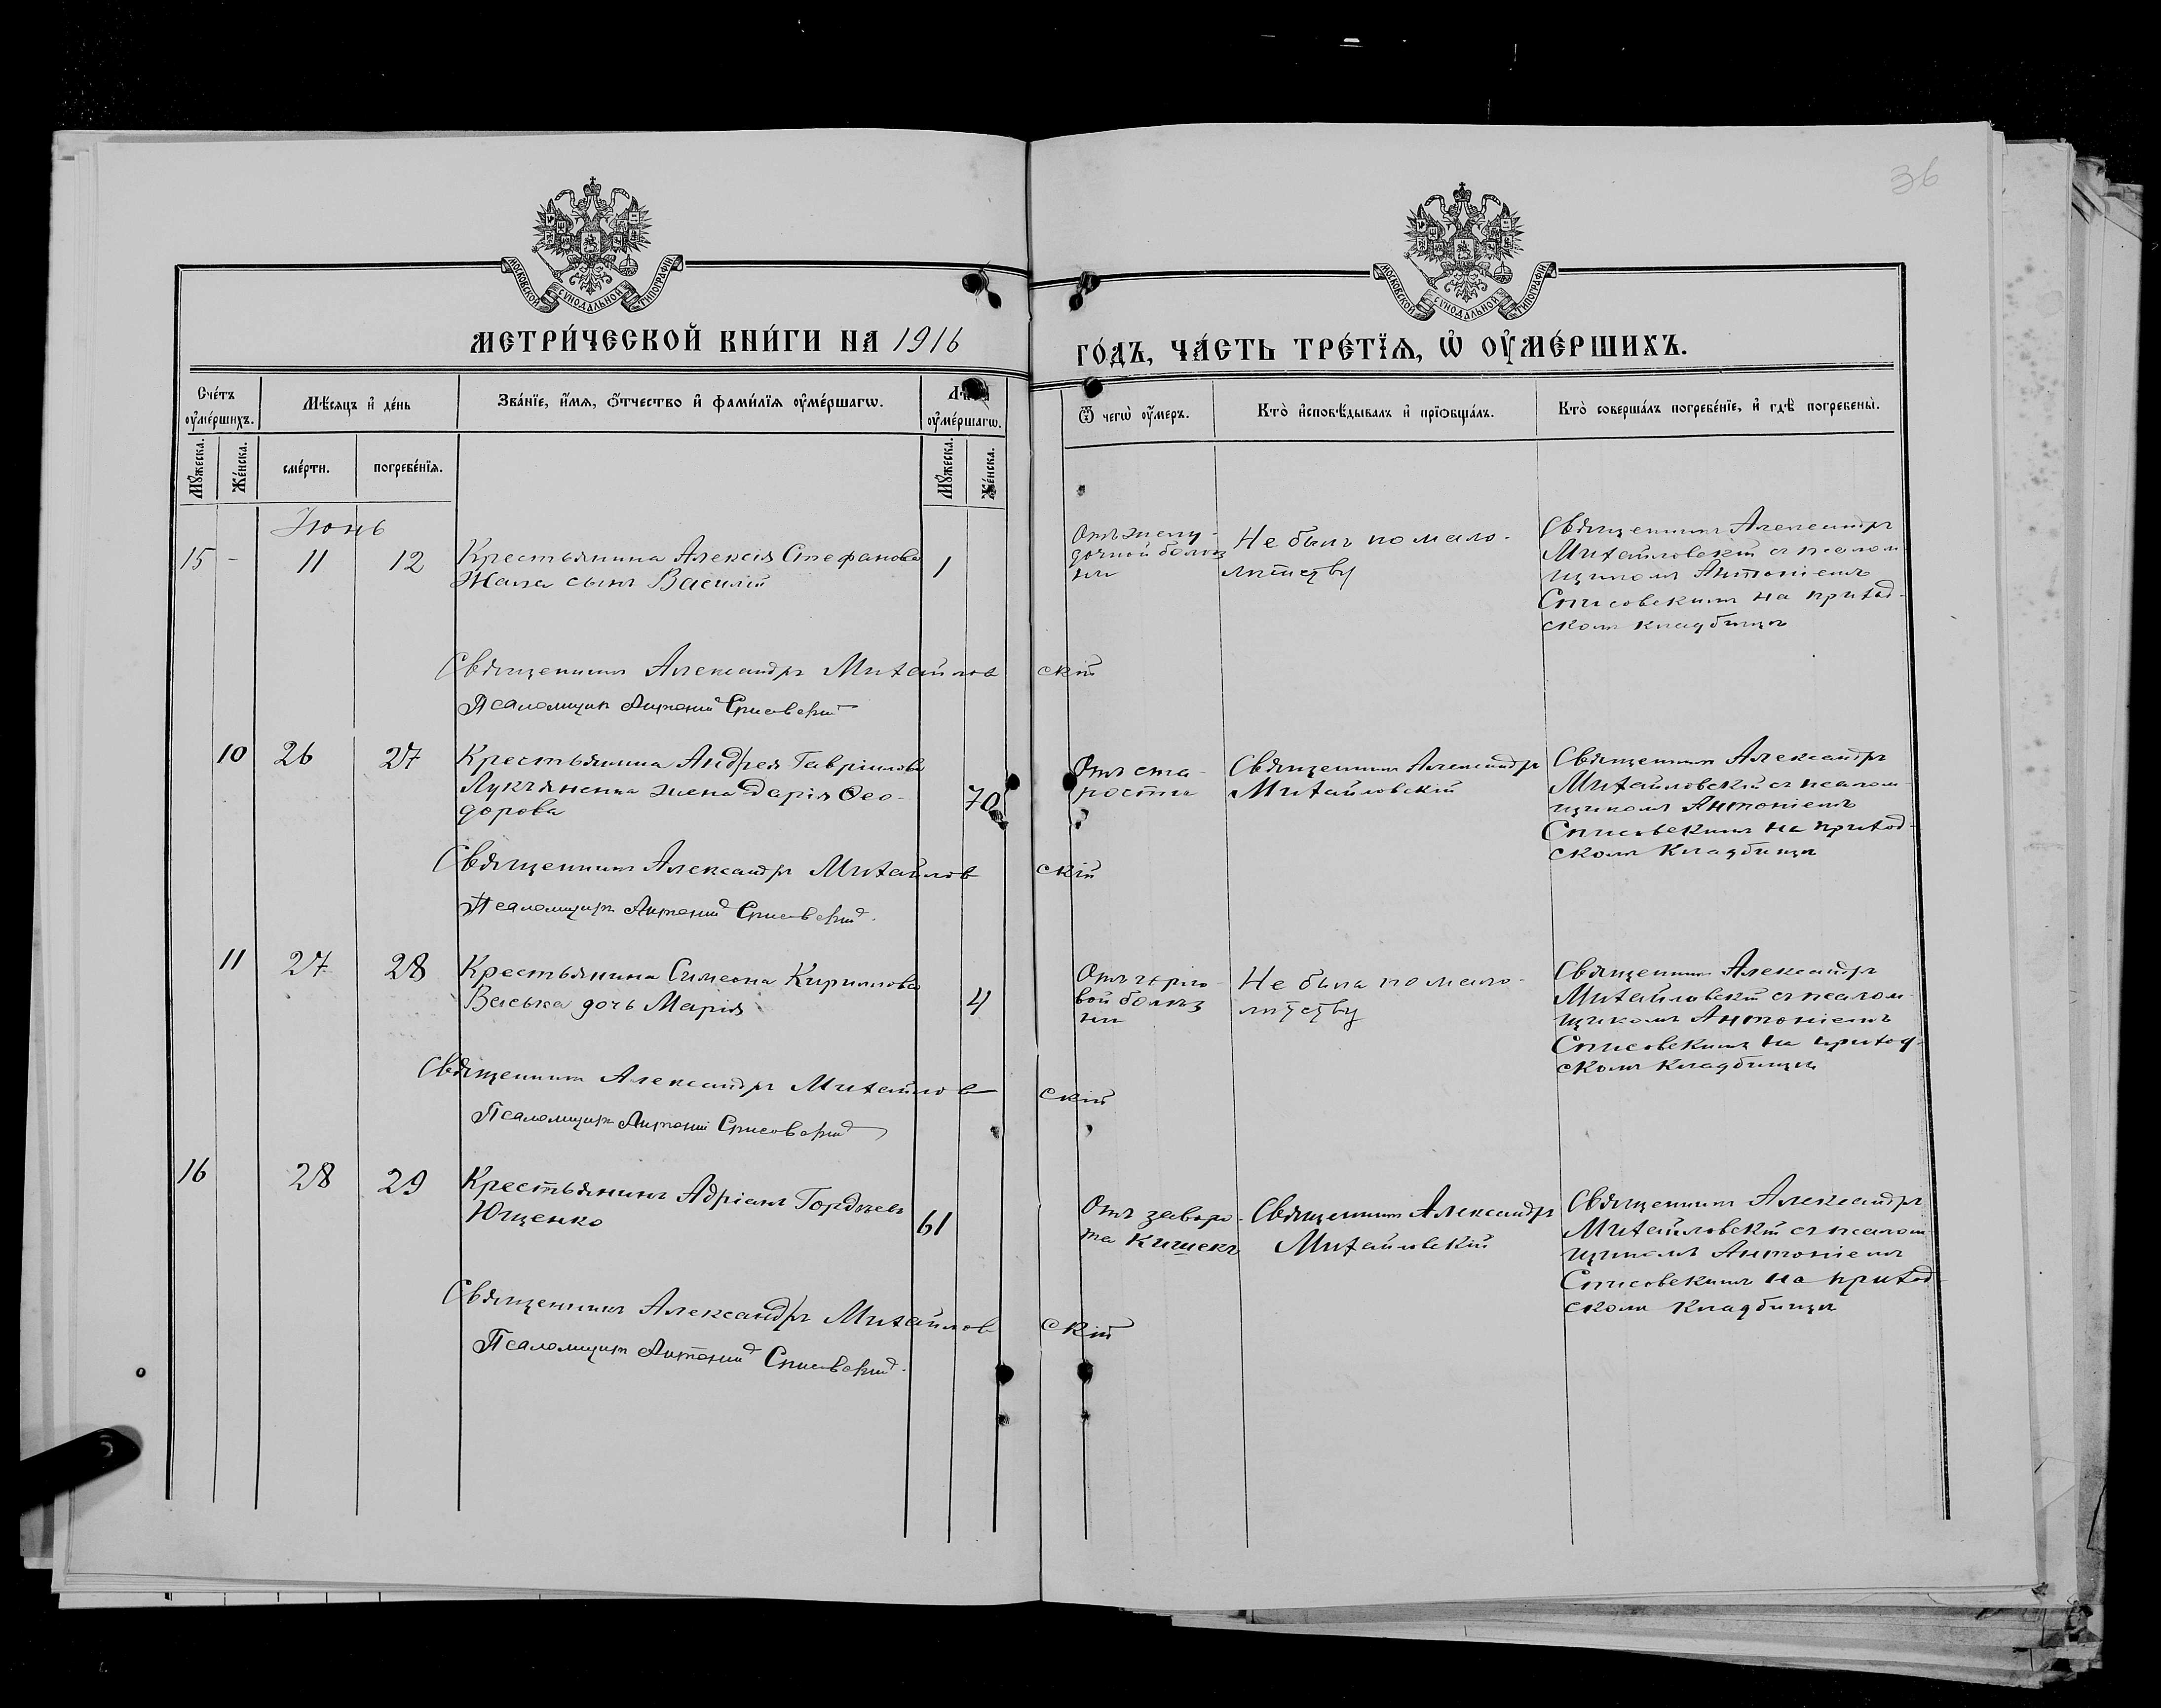 36
МОСКОВСКОЙ СѴНОДАЛЬНОЙ ТИПОГРАФІИ
МОСКОВСКОЙ СѴНОДАЛЬНОЙ ТИПОГРАФІИ
МЕТРИ́ЧЕСКОЙ КНИ́ГИ НА 1916
ГО́ДЪ, ЧА́СТЬ ТРЕ́ТЇѦ, Ѡ҆ ОУ҆МЕ́РШИХЪ.
Сче́тъ оу҆ме́ршихъ.
Мѣ́сяцъ и҆ де́нь
Зва́нїе, и҆́мѧ, ѻ҆́тчество и҆ фами́лїѧ оу҆ме́ршагѡ.
оу҆ме́ршагѡ.
Ѿ чегѡ̀ оу҆́меръ.
Кто̀ и҆сповѣ́дывалъ и҆ прїѻбща́лъ.
Кто̀ соверша́лъ погребе́нїе, и҆ гдѣ̀ погребены̀.
Мꙋ́жеска.
Же́нска.
сме́рти.
погребе́нїѧ.
Мꙋ́жеска.
Же́нска.
Іюнь
15 - 11 12 Крестьянина Алексія Стефанова 1
Жала сынъ Василій
Отъ желу-
дочной болѣз
ни
Не былъ по мало-
лѣтству
Священникъ Александръ
Михайловскій съ псалом
щикомъ Антоніемъ
Списовскимъ на приход-
скомъ кладбищѣ
Священникъ Александръ Михайловскій
Псаломщикъ Антоній Списовскій
10 26 27 Крестьянина Андрея Гавріилова
Лукьяненка жена Дарія Ѳео- 70
дорова
Отъ ста-
рости
Священникъ Александръ
Михайловскій
Священникъ Александръ
Михайловскій съ псалом-
щикомъ Антоніемъ
Списовскимъ на приход-
скомъ кладбищѣ
Священникъ Александръ Михайловскій
Псаломщикъ Антоній Списовскій.
11 27 28 Крестьянина Симеона Кириллова
Васька дочь Марія 4
Отъ
вой болѣз
ни
Не была по мало-
лѣтству
Священникъ Александръ
Михайловскій съ псалом-
щикомъ Антоніемъ
Списовскимъ на приход-
скомъ кладбищѣ
Священникъ Александръ Михайловскій
Псаломщикъ Антоній Списовскій
16 28 29 Крестьянинъ Адріанъ Гордѣевъ
Ющенко 61
Отъ заворо-
та кишекъ
Священникъ Александръ
Михайловскій
Священникъ Александръ
Михайловскій съ псалом
щикомъ Антоніемъ
Списовскимъ на приход-
скомъ кладбищѣ
Священникъ Александръ Михайловскій
Псаломщикъ Антоній Списовскій.